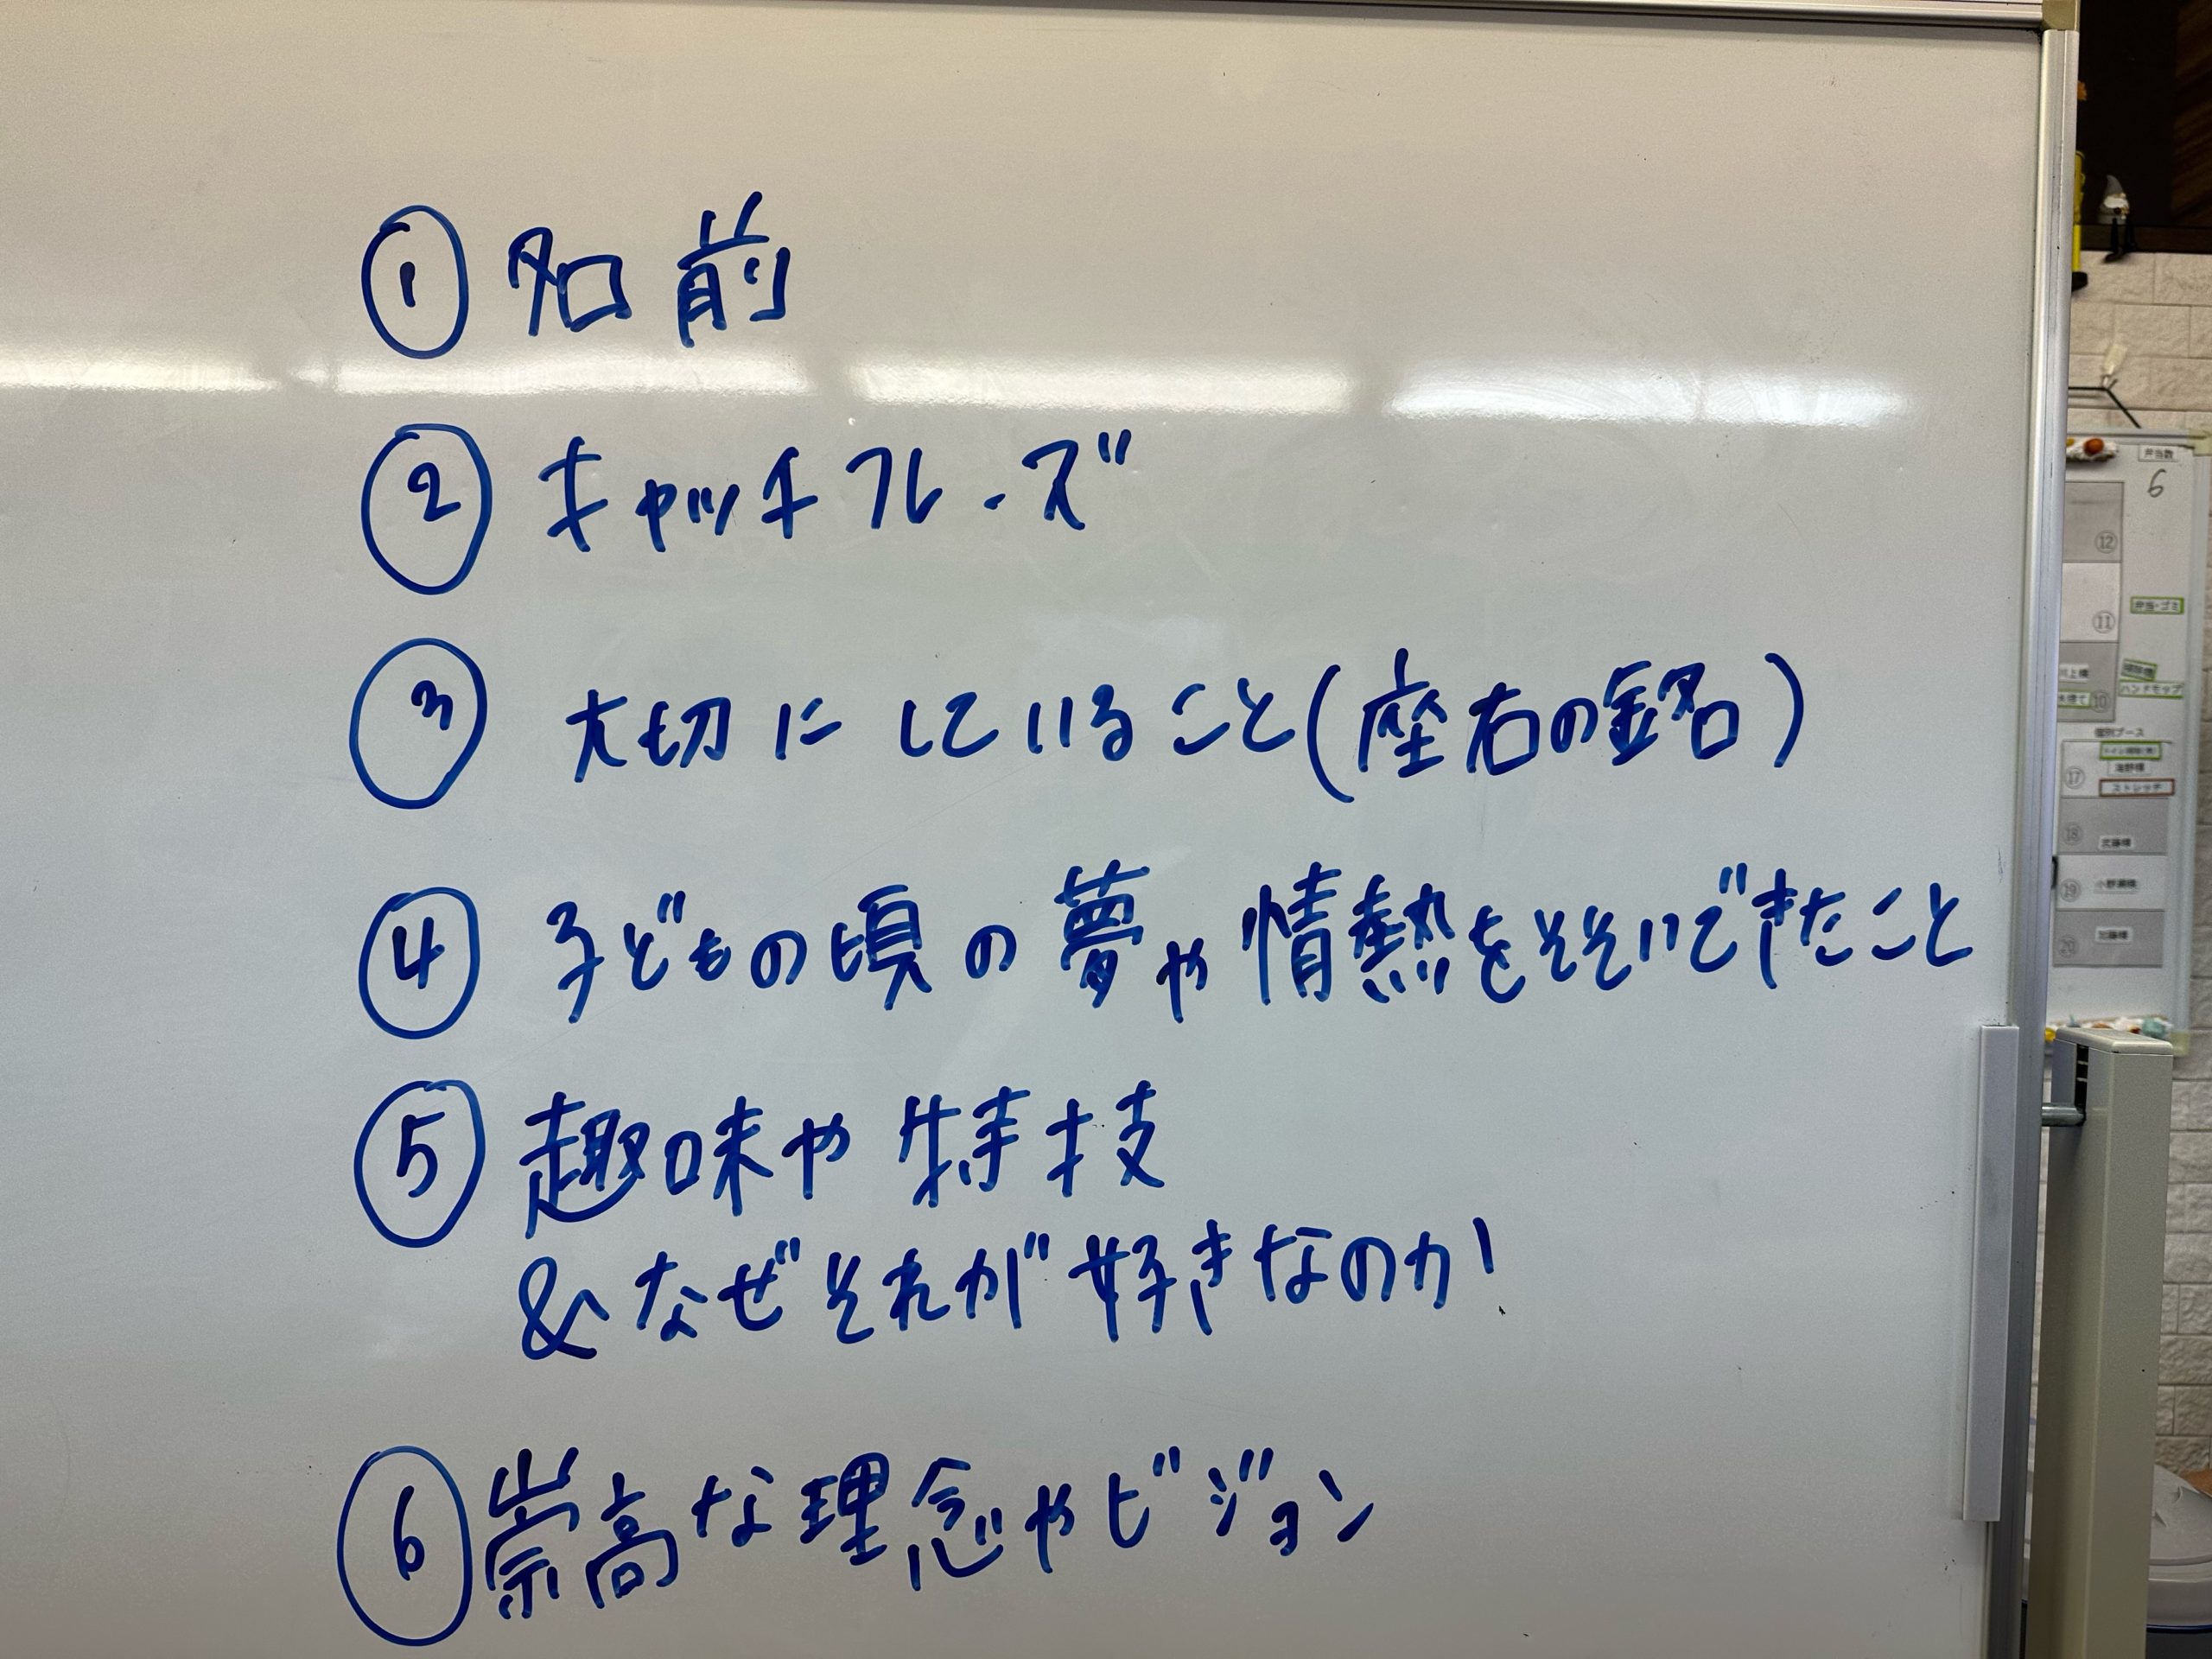 ① 名前
② キャッチフレーズ
③ 大切にしていること(座右の銘)
④ 子どもの頃の夢や情熱をそそいできたこと
⑤ 趣味や特技
& なぜそれが好きなのか!
⑥ 崇高な理念やビジョン
弁当数
6
⑫
⑪
弁当・ゴミ
⑩
ハンドモップ
個別ブース
⑰
ストレッチ
⑱
⑲
⑳